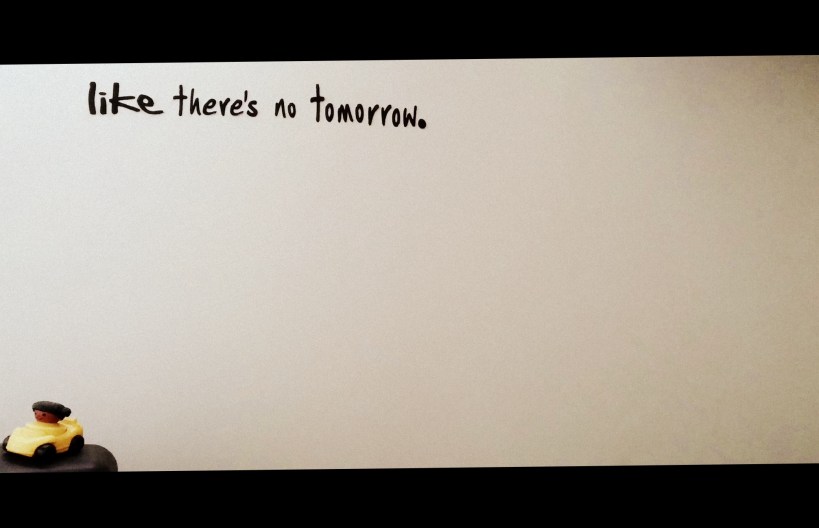 like there's no tomorrow.